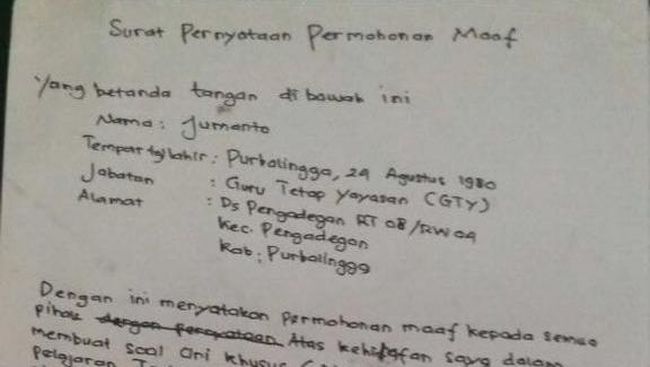 Surat Pernyataan Permohonan Maaf
Yang betanda tangan di bawah ini
Nama : Jumanto
Tempat tgl lahir : Purbalingga, 29 Agustus 1980
Jabatan : Guru Tetap Yayasan (GTY)
Alamat : Ds Pengadegan RT 08/RW 04
Kec. Pengadegan
Kab : Purbalingga
Dengan ini menyatakan permohonan maaf kepada semua
pihak dengan pernyataan Atas kehilafan saya dalam
membuat soal
pelajaran